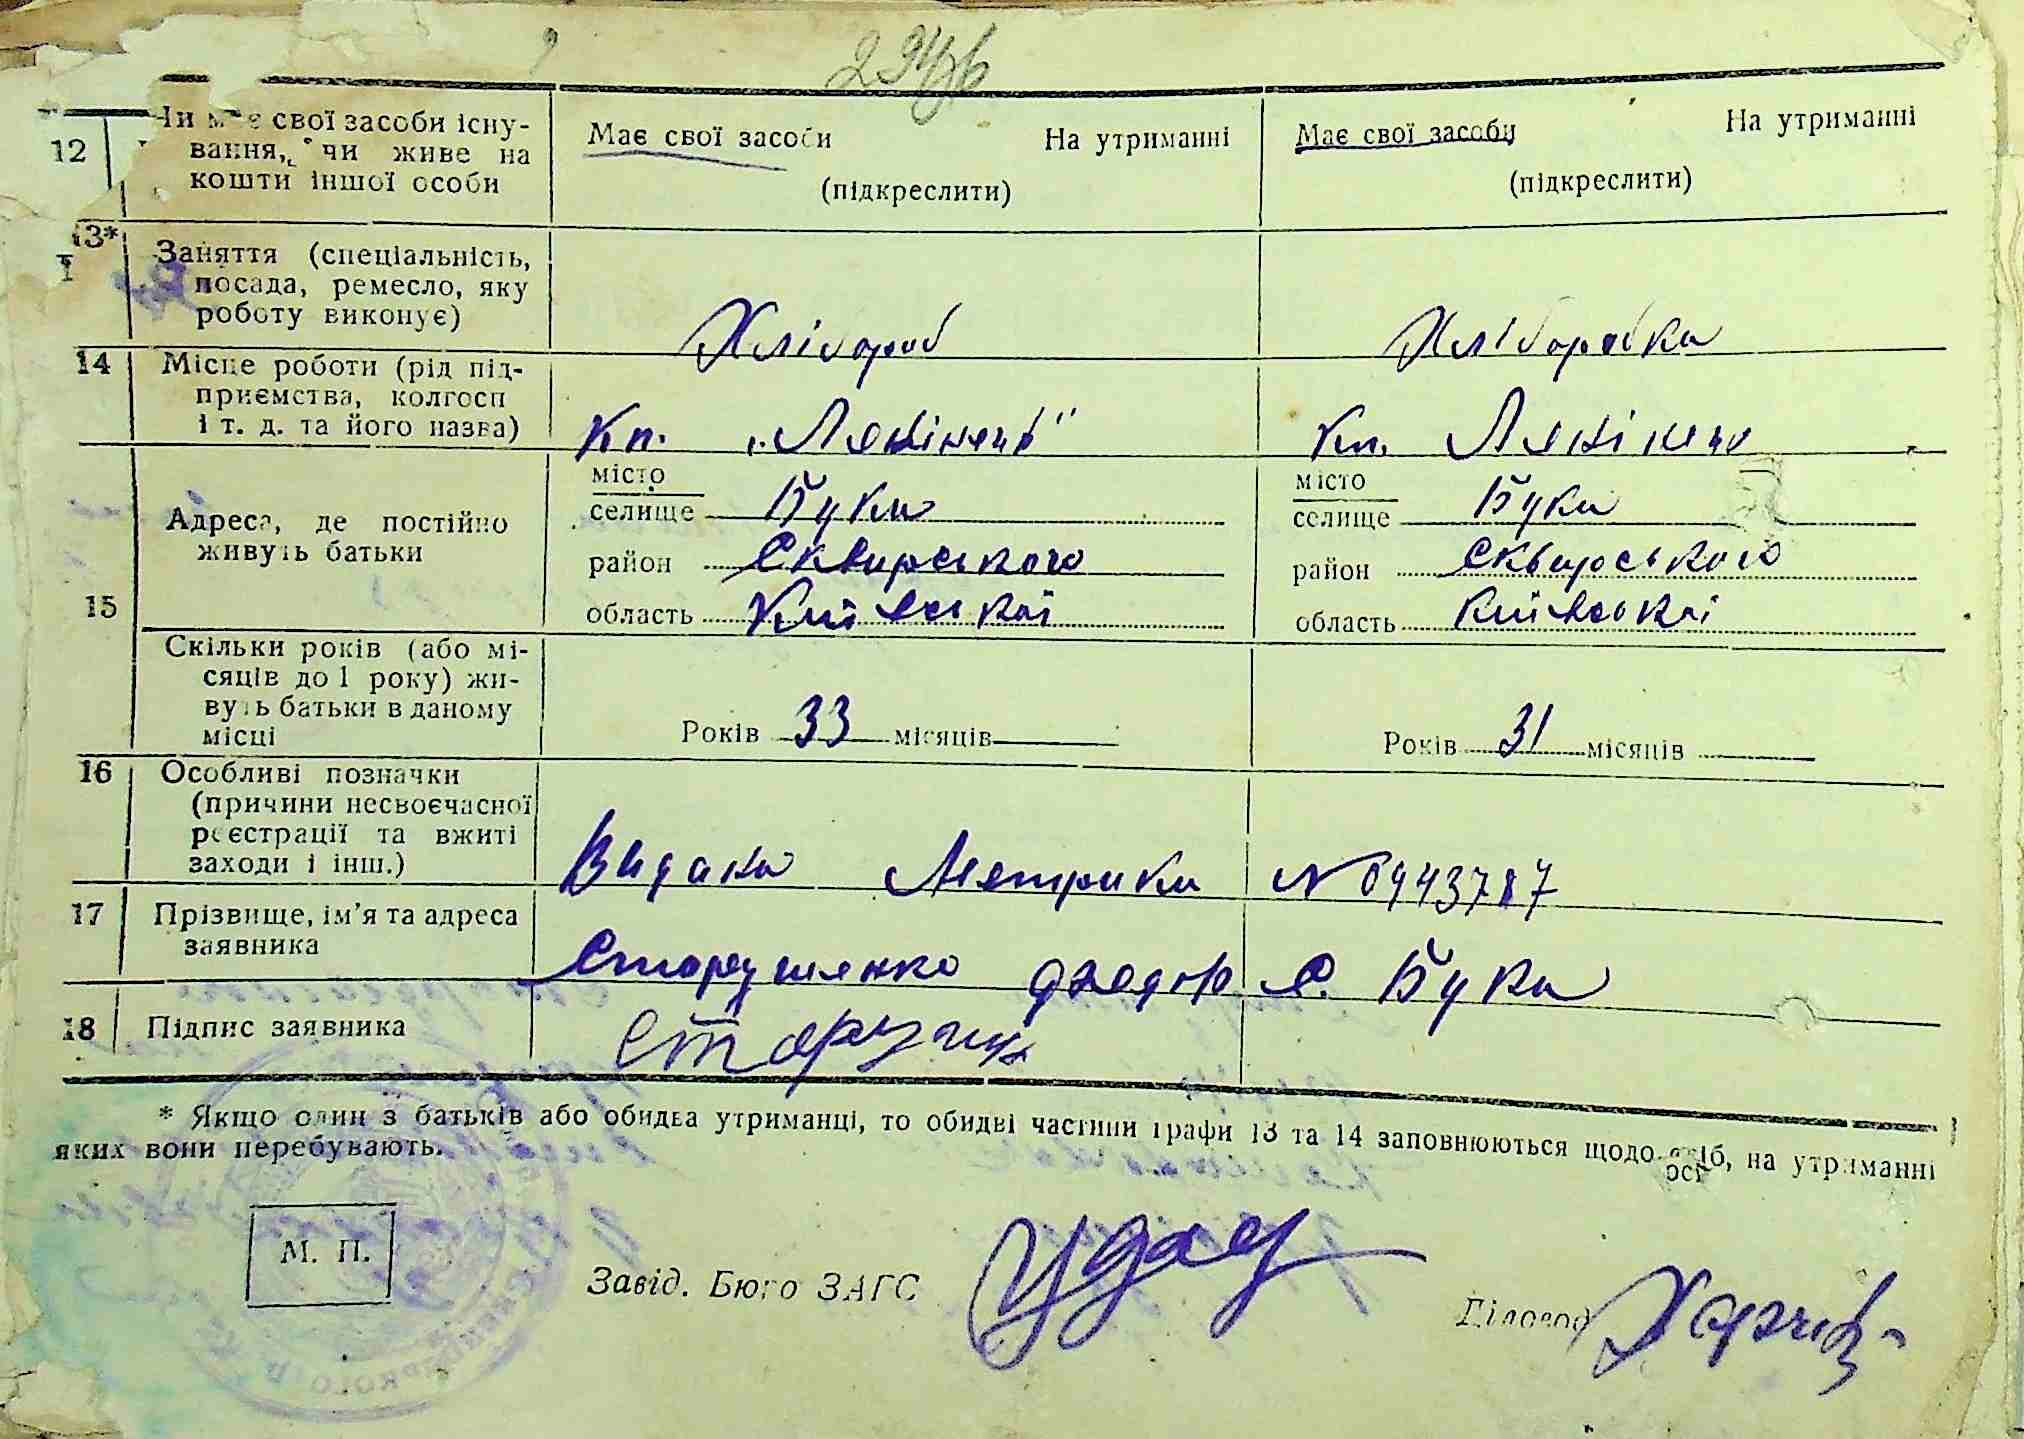 12
Чи має свої засоби існу-
вання, чи живе на
кошти іншої особи
Має свої засоби На утриманні
(підкреслити)
Має свої засоби На утриманні
(підкреслити)
13*
Заняття (спеціальність,
посада, ремесло, яку
роботу виконує)
Хлібороб
Хліборобка
14
Місце роботи (рід під-
приємства, колгосп
і т. д. та його назва)
Кп.
Кп.
15
Адреса, де постійно
живуть батьки
місто
селище Буки
район Сквирського
область Київської
місто
селище Буки
район Сквирського
область Київської
Скільки років (або мі-
сяців до 1 року) жи-
вуть батьки в даному
місці
Років 33 місяців
Років 31 місяців
16
Особливі позначки
(причини несвоєчасної
реєстрації та вжиті
заходи і інш.)
Видано Метрики № 0943787
17
Прізвище, ім'я та адреса
заявника
Старушенко Федор с. Буки
18
Підпис заявника
* Якщо один з батьків або обидва утриманці, то обидві частини графи 13 та 14 заповнюються щодо осіб, на утриманні
яких вони перебувають.
М. П.
Завід. Бюро ЗАГС
Діловод